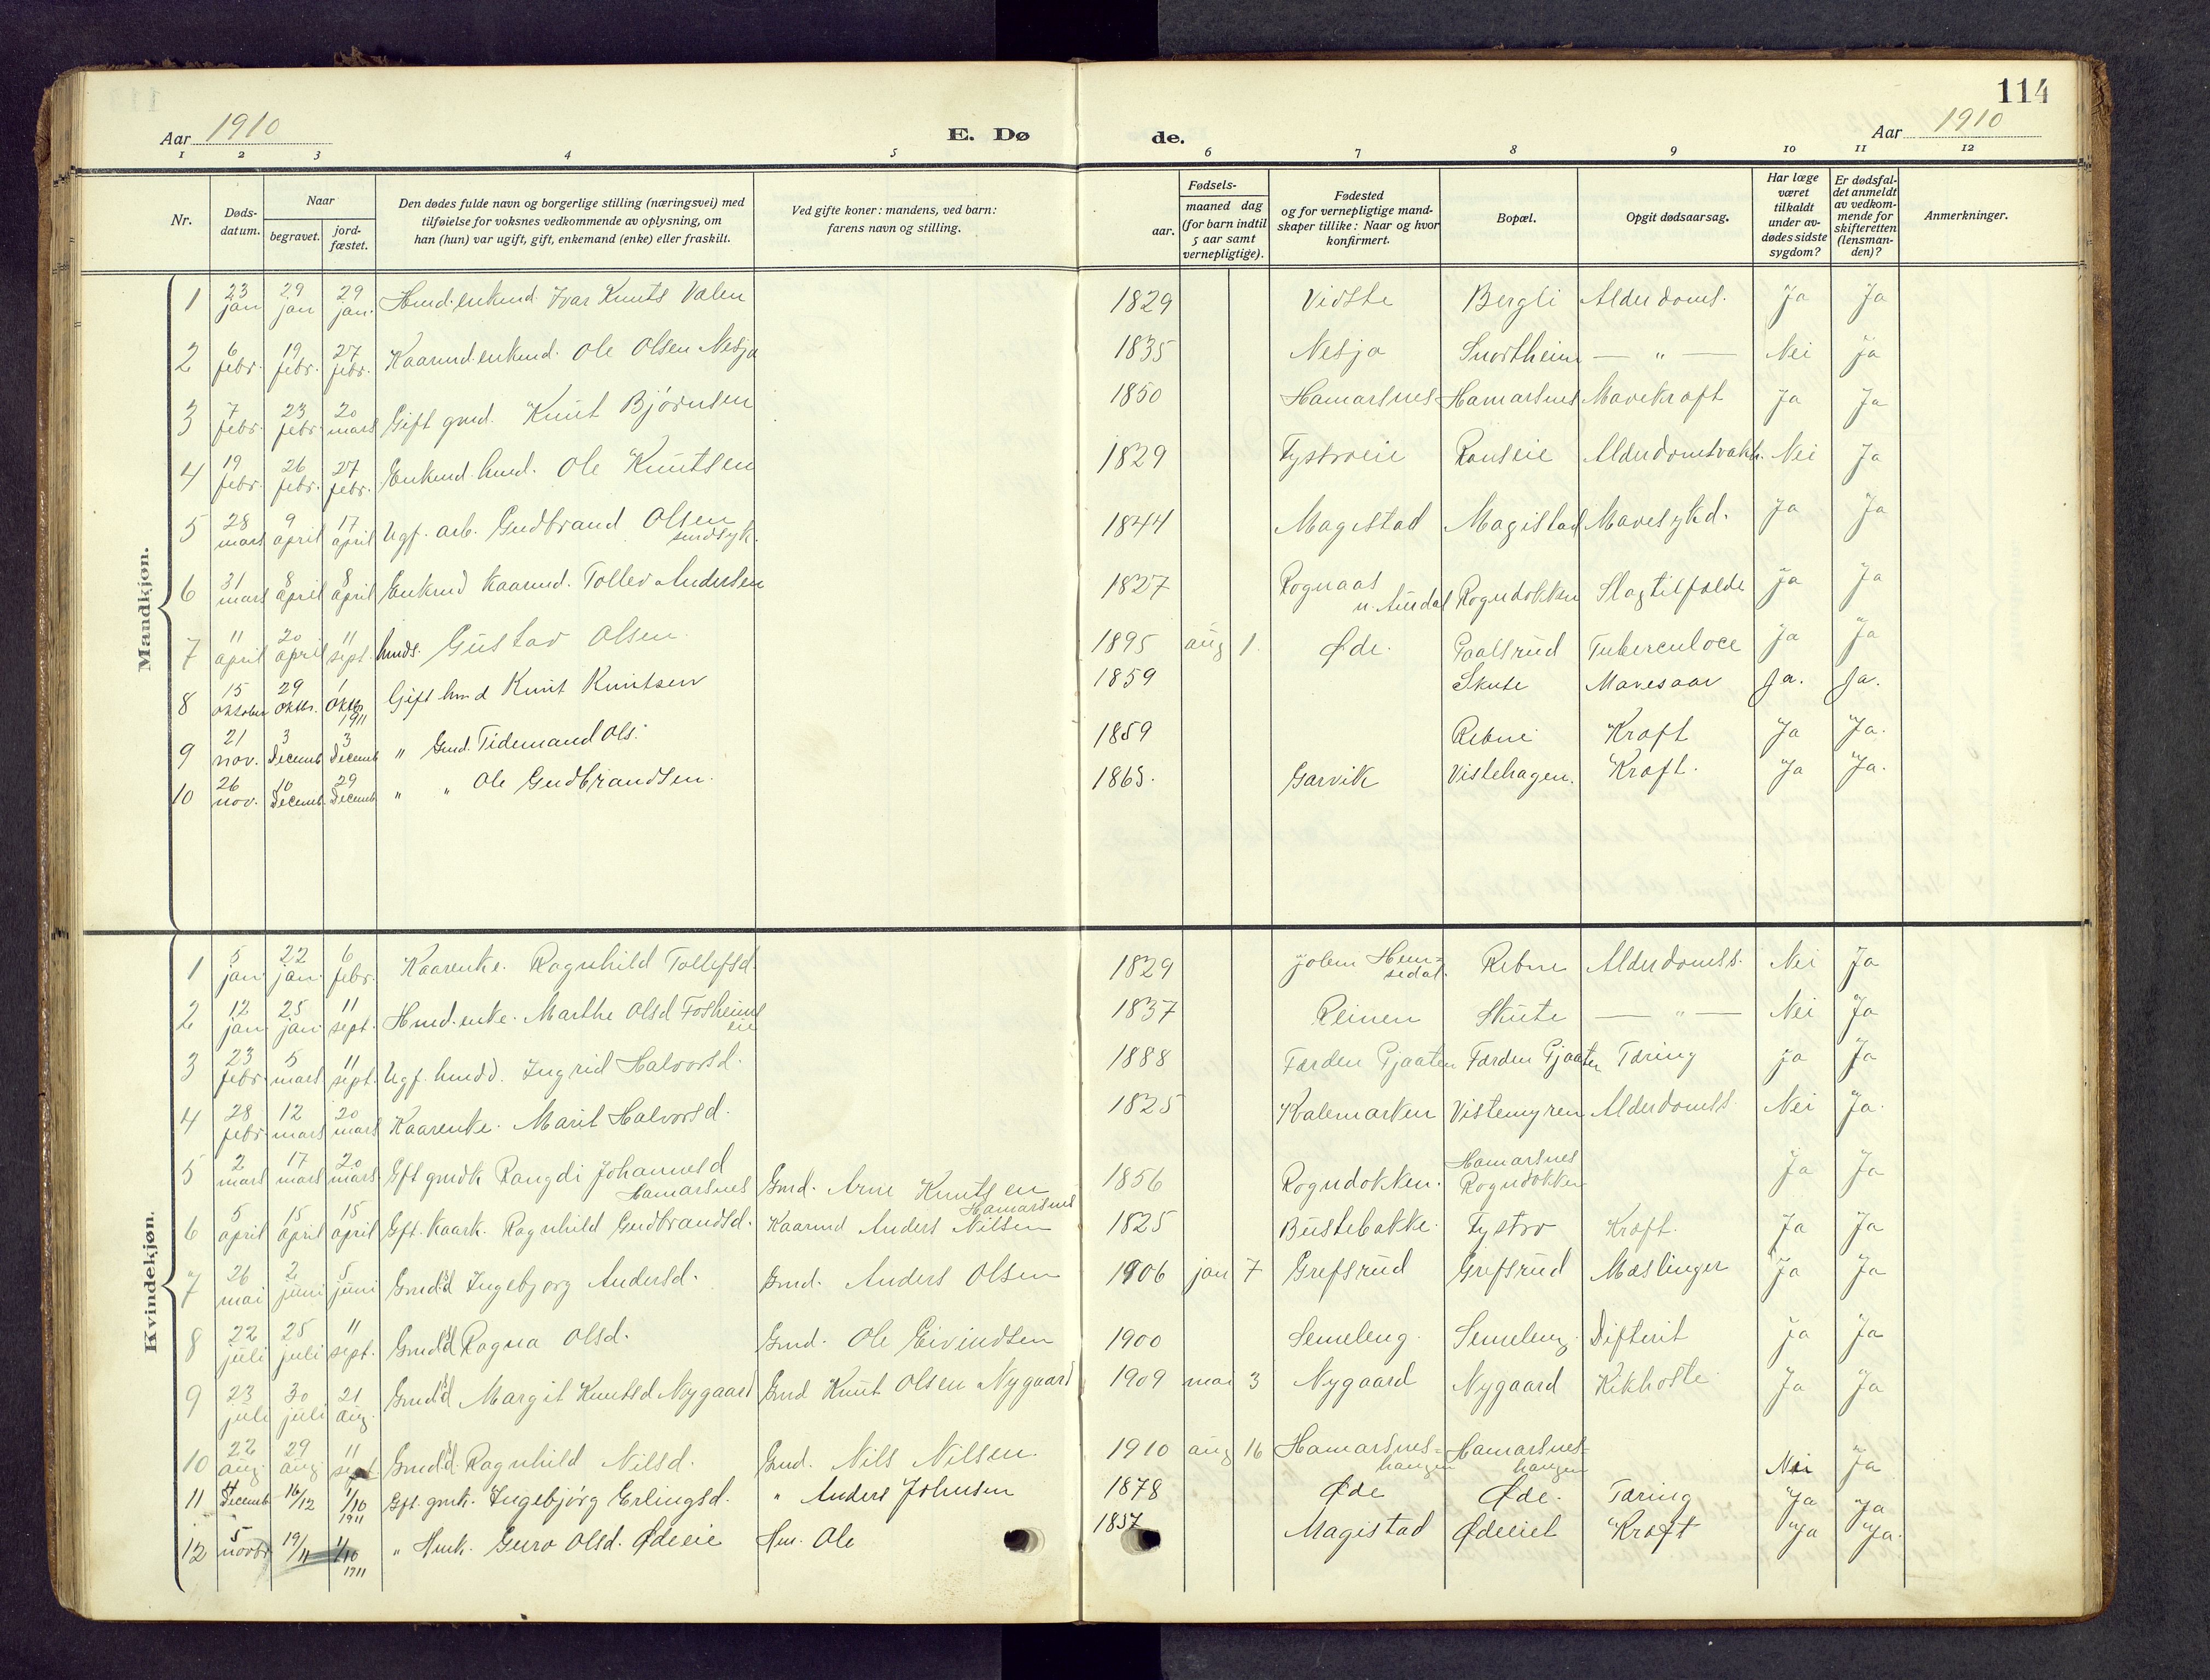 114
Aar 1910
E. Dø de.
Aar 1910
1 2 3 4 5 6 7 8 9 10 11 12
Nr.
Døds-datum.
Naar
begravet.
jord-fæstet.
Den dødes fulde navn og borgerlige stilling (næringsvei) med
tilføielse for voksnes vedkommende av oplysning, om
han (hun) var ugift, gift, enkemand (enke) eller fraskilt.
Ved gifte koner: mandens, ved barn:
farens navn og stilling.
Fødsels-
aar.
maaned dag
(for barn indtil
5 aar samt
vernepligtige).
Fødested
og for vernepligtige mand-
skaper tillike: Naar og hvor
konfirmert.
Bopæl.
Opgit dødsaarsag.
Har læge
været
tilkaldt
under av-
dødes sidste
sygdom?
Er dødsfal-
det anmeldt
av vedkom-
mende for
skifteretten
(lensman-
den)?
Anmerkninger.
Mandkjøn.
1 23 jan 29 jan 29 jan. Hmd. enkmd. Ivar Knuts Valen 1829 Vidste Bergli Alderdoms. Ja Ja
2 6 febr. 19 febr. 27 febr. Kaarmd. enkmd. Ole Olsen Nesja 1835 Nesja Snortheim — " — Nei Ja
3 7 febr. 23 febr. 20 mars Gift gmd. Knut Bjørnsen 1850 Hamarsnes Hamarsnes Mavekraft Ja Ja
4 19 febr. 26 febr. 27 febr. Enkmd. hmd. Ole Knutsen 1829 Tystroeie Ranseie Alderdomsvakh. Nei Ja
5 28 mars 9 april 17 april Ugf. arb. Gudbrand Olsen sindsyk. 1844 Magistad Magistad Mavesykd. Ja Ja
6 31 mars 8 april 8 april Enkmd Kaarmd. Tollev Andersen 1827 Rognaas n. Aurdal Rogndokken Slagtilfælde Ja Ja
7 11 april 20 april 11 sept. hmds. Gustav Olsen 1895 aug 1. Øde. Gaalsrud Tuberculoce Ja Ja
8 15 oktober 29 oktbr. 1 oktbr 1911 Gift hmd Knut Knutsen 1859 Skute Mavesaar Ja. Ja.
9 21 nov. 3 Decemb 3 Decemb " Gmd. Tidemand Ols. 1859 Rebne Kræft Ja Ja.
10 26 nov. 10 Decemb. 29 Decemb " " Ole Gudbrandsen. 1865. Garvik Vistehagen. Kræft. Ja Ja.
Kvindekjøn.
1 5 jan. 22 jan. 6 febr. Kaarenke. Ragnhild Tollefsd. 1829 Jolem Hem-sedal. Rebne Alderdomss. Nei Ja
2 12 jan. 25 jan. 11 sept. Hmd. enke. Marthe Olsd Fosheims eie 1837 Reinen Skute — " — Nei Ja
3 23 febr. 5 mars 11 sept. Ugf. hmdd. Ingrid Halvorsd. 1888 Færden Pjaaten Færden Pjaaten Tæring Ja Ja
4 28 febr. 12 mars 20 mars Kaarenke. Marit Halvorsd. 1825 Kalemarken Vistemyren Alderdomss. Nei Ja.
5 2 mars 17 mars 20 mars Gft gmdk Rangdi Johannesd Hamarsnes Gmd. Arne Knutsen Hamarsnes 1856 Rogndokken. Hamarsnes Rogndokken Ja Ja
6 5 april 15 april 15 april Gft. Kaark. Ragnhild Gudbrandsd. Kaarmd Anders Nilsen 1825 Bustebakke. Tystro Kræft. Ja Ja
7 26 mai 2 juni 5 juni Gmdd. Ingebjørg Andersd. Gmd. Anders Olsen 1906 jan 7 Grefsrud Grefsrud Mæslinger Ja Ja
8 22 juli 25 juli 11 sept. Gmdd Ragna Olsd. Gmd. Ole Eivindsen 1900 Semeleng. Semeleng. Difterit Ja Ja
9 23 juli 30 juli 21 aug. Gmdd Margit Knutsd Nygaard Gmd Knut Olsen Nygaard 1909 mai 3 Nygaard Nygaard Kikhoste Ja Ja
10 22 aug. 29 aug 11 sept. Gmdd. Ragnhild Nilsd. Gmd. Nils Nilsen. 1910 aug 16 Hamarsnes-haugen Hamarsnes-haugen Nei Ja
11 Decemb 16/12 1/10 1911 Gft. gmk. Ingebjørg Erlingsd. " Anders Johnsen 1878 Øde Øde. Tæring Ja Ja
12 5 novbr 19/11 1/10 1911 " Hmk. Guro Olsd. Ødeeie Hm. Ole 1857 Magistad Ødeeiet Kræft Ja Ja.